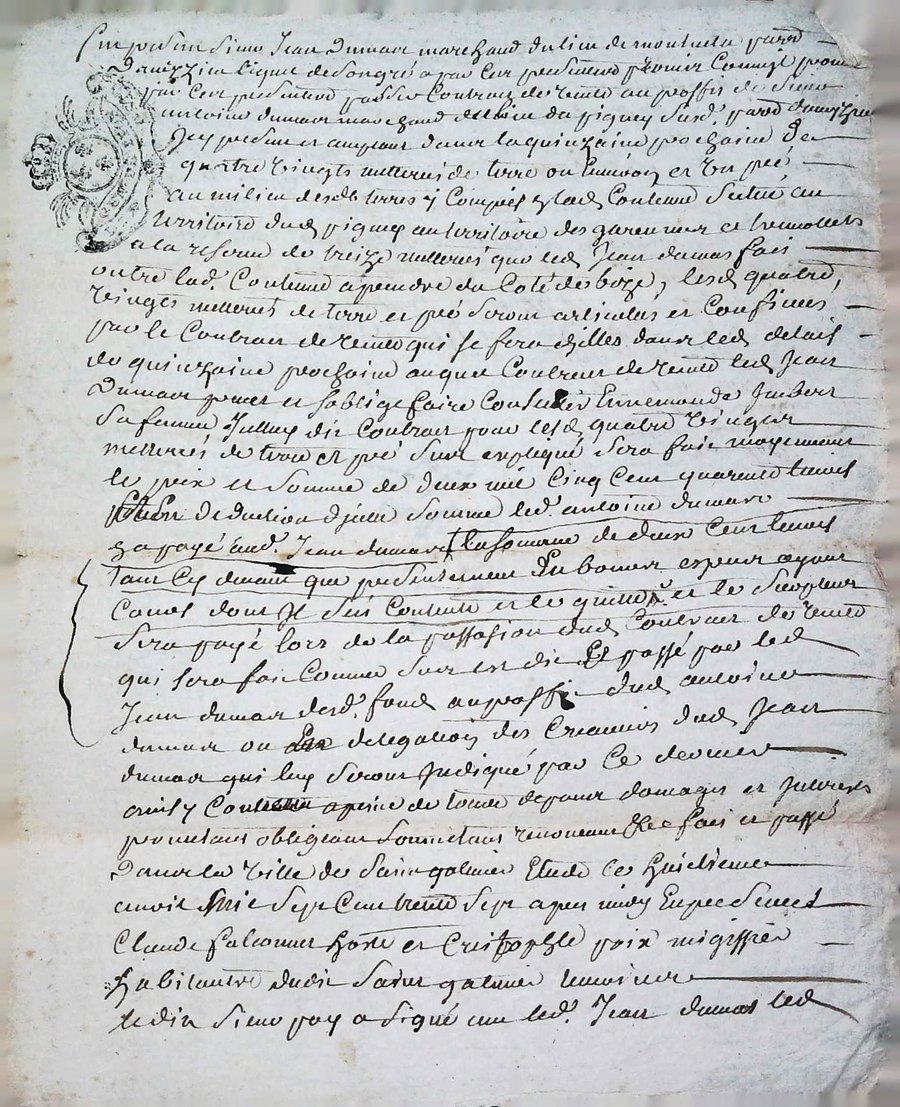 present sieur Jean dumas marchand du lieu de paroisse
de son gré a par ces presentes promis
par ces presentes passer Contrat de vente au proffit de sieur
antoine dumas marchand du lieu du pigney susd. parr
Icy present et acceptant dans la quinzaine prochaine de
quatre vingts metterées de terre ou et un pré
au milieu desd terres y Compris Contenu situé au
territoire dud pigney au territoire des garennes et
a la reserve de treize metterées que led Jean dumas fait
outre lad. Contenue a prendre du Coté de bize, lesd quatre
vingts metterées de terre et pré seront articulés et Confinés
par le Contrat de vente qui se fera dans led delais
de quinzaine prochaine auquel Contrat de vente led Jean
dumas promet et soblige faire Ennemonde Imbert
sa femme dit Contrat pour lesd quatre vingts
metterées de terre et pré sus expliqué sera fait moyennant
le prix et somme de deux mil Cinq Cent quarante livres
deduction dicelle somme led. antoine dumas
a payé aud. Jean dumas la somme de deux Cent livres
tant Cy devant que presentement En bonnes especes ayant
Cours dont Il sest Contenté et le quitte et le surplus
sera payé lors de la passation dud Contrat de vente
qui sera fait Comme sus est dit Et passé par led
Jean dumas desd. fonds au proffit dud antoine
dumas ou delegation des Creanciers dud Jean
dumas qui luy seront Indiqué par Ce dernier
ainsy a peine de tous depens domages et Interets
promettant obligeant soumettant renonceant &c fait et passé
dans la ville de saint galmier Etude Ce huitieme
avril Mil sept Cent trente sept apres midy En presence
Claude falconnet hoste et Cristophle poix migissier
habitants dudit saint galmier temoins
ledit sieur poix a signé avec led. Jean dumas led